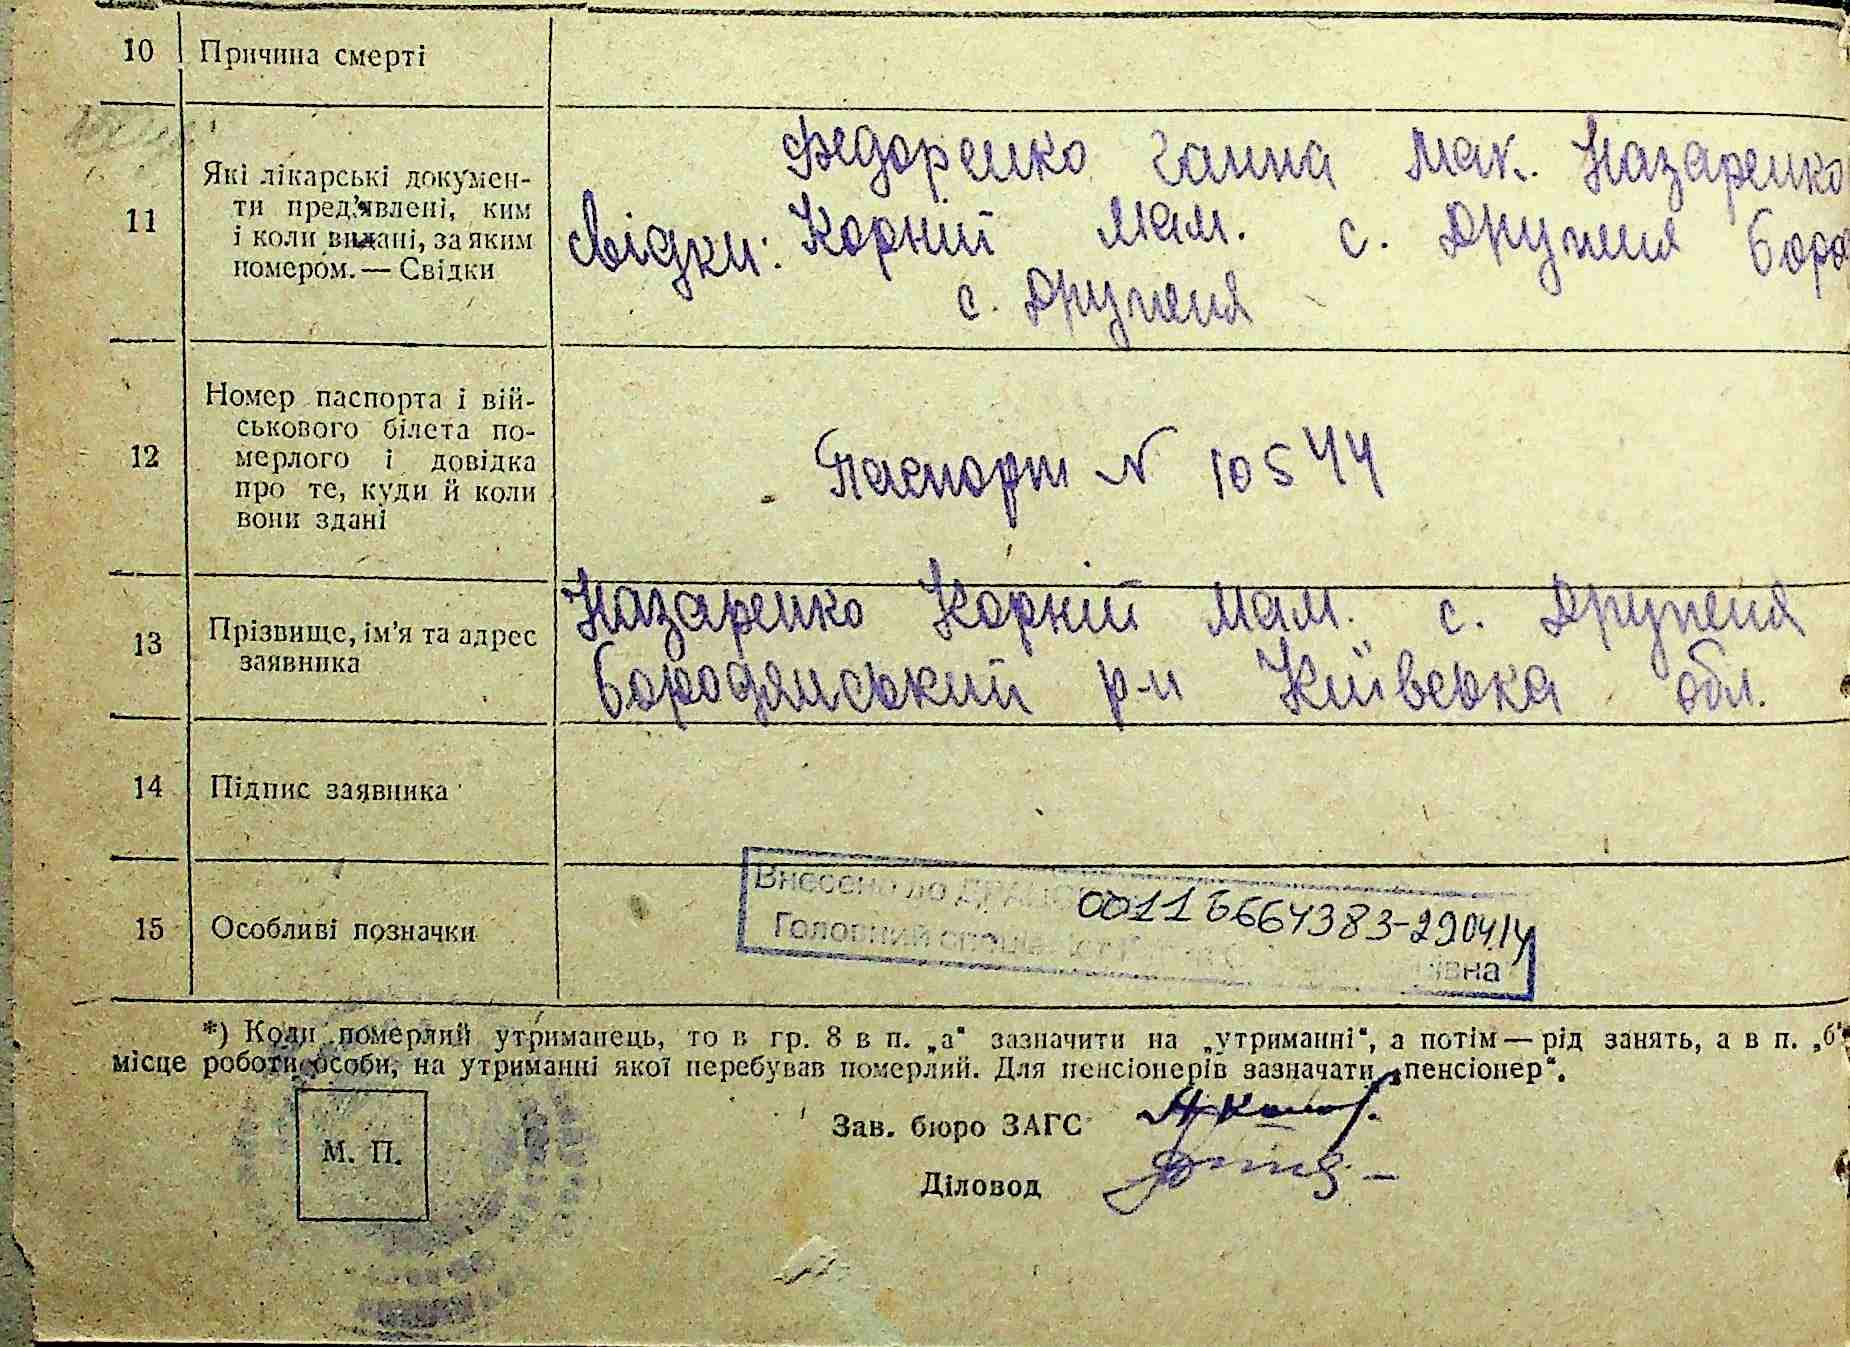 10 Причина смерті
11 Які лікарські докумен-
ти пред'явлені, ким
і коли видані, за яким
номером. — Свідки
Федоренко Ганна Мак. Назаренко
Свідки: Корній Мам. с. Дружня Боро
с. Дружня
12 Номер паспорта і вій-
ськового білета по-
мерлого і довідка
про те, куди й коли
вони здані
Паспорт N 10544
13 Прізвище, ім'я та адрес
заявника
Назаренко Корній Мам. с. Дружня
Бородянський р-н Київська обл.
14 Підпис заявника
15 Особливі позначки
Внесено до
00116664383-290414
Головний
*) Коли померлий утриманець, то в гр. 8 в п. „а“ зазначити на „утриманні“, а потім — рід занять, а в п. „б“
місце роботи особи, на утриманні якої перебував померлий. Для пенсіонерів зазначати „пенсіонер“.
М. П.
Зав. бюро ЗАГС
Діловод